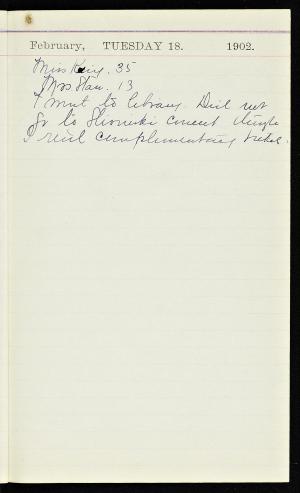 February, TUESDAY 18. 1902.
Miss King. 35
Mrs Stan. 13
I went to library. Did not
go to concert though
I recd complimentary ticket.